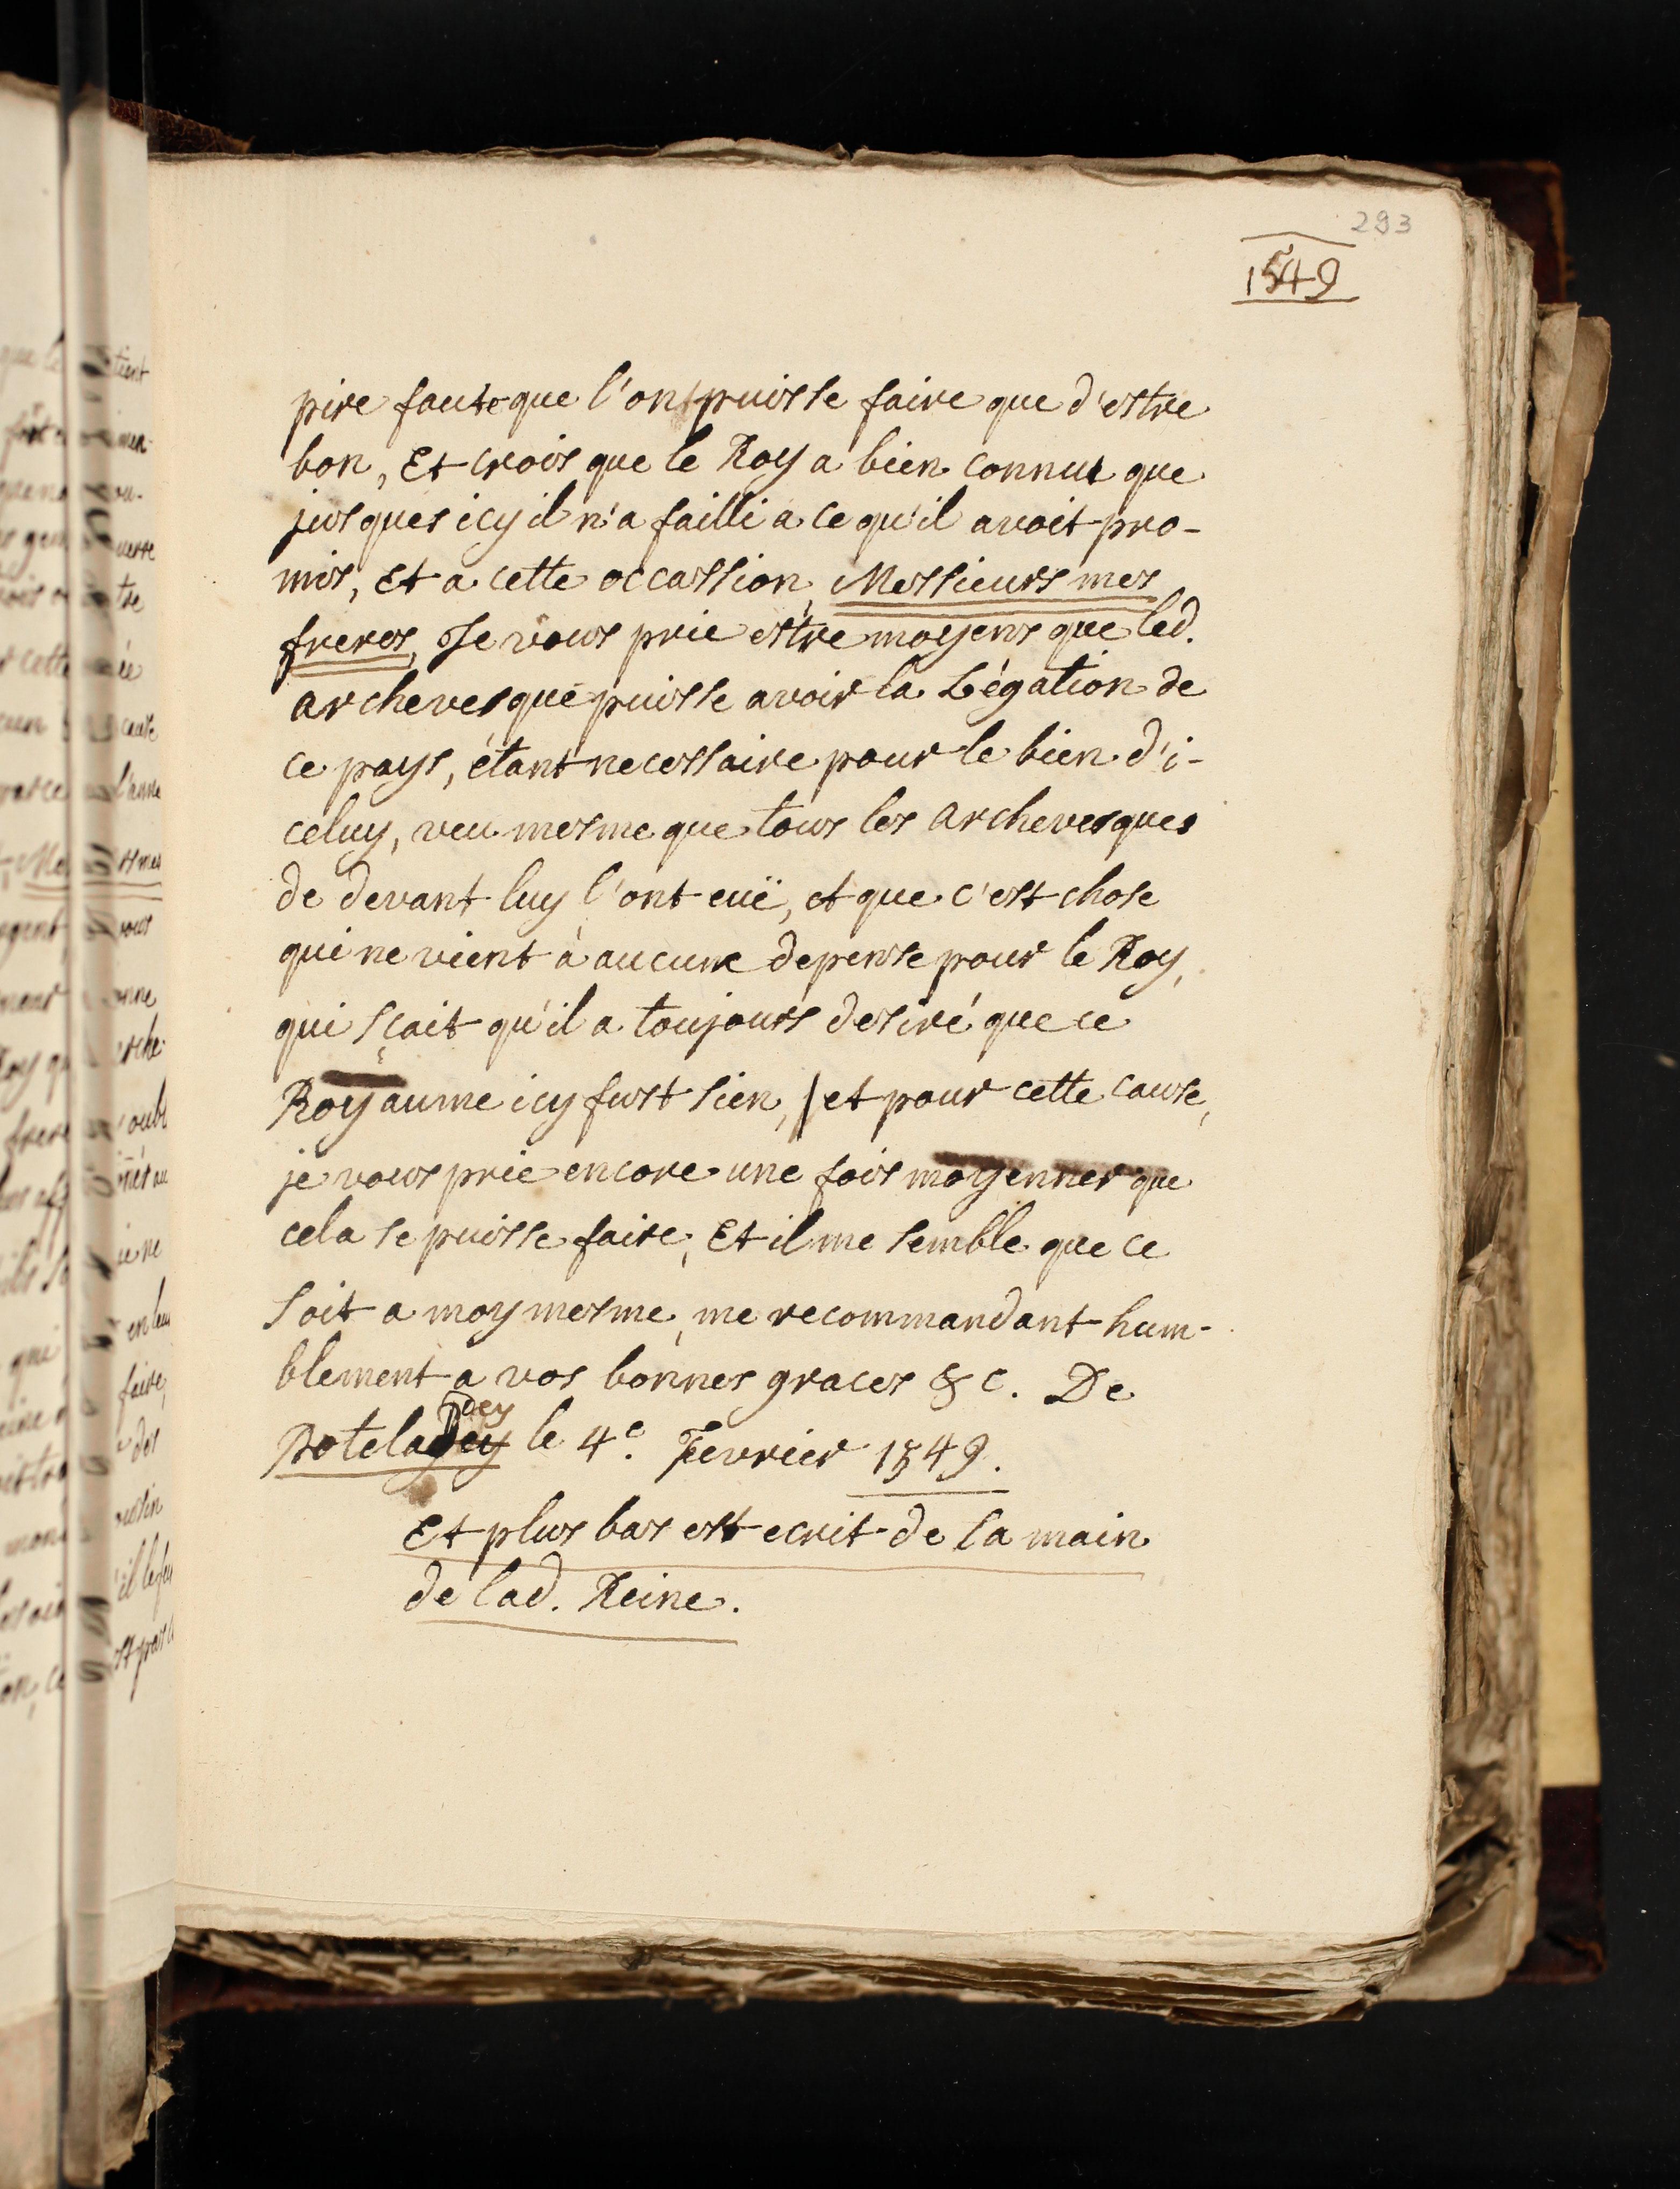 293
1549
pire faute que l'on puisse faire que d'estre
bon, Et crois que le Roy a bien connu que
jusques icy il n'a failli a ce qu'il avoit pro-
mis, Et a cette occassion, Messieurs mes
freres, Je vous prie estre moyens que led.
archevesque puisse avoir la Légation de
ce pays, étant necessaire pour le bien d'i-
celuy, veu mesme que tous les archevesques
de devant luy l'ont euë, et que c'est chose
qui ne vient à aucune depense pour le Roy,
qui sçait qu'il a toujours desiré que ce
Royaume icy fust sien, et pour cette cause,
je vous prie encore une fois moyenner que
cela se puisse faire, Et il me semble que ce
soit a moy mesme, me recommandant hum-
blement a vos bonnes graces & c. De
dey
le 4e. Fevrier 1549.
Et plus bas est ecrit de la main
de lad. Reine.